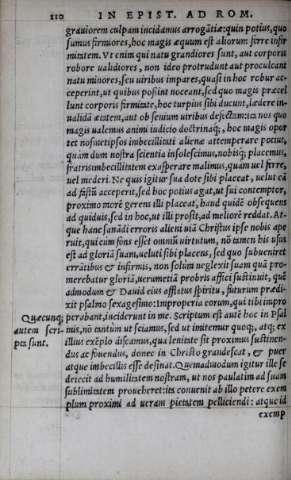 110 IN EPIST. AD ROM.
grauiorem culpam incidamus arrogātiæ: quin potius, quo
sumus firmiores, hoc magis æquum est aliorum ferre infir
mitatem. Ut enim qui natu grandiores sunt, aut corporis
robore ualidiores, non ideo protrudunt aut proculcant
natu minores, seu uiribus impares, quasi in hoc robur ac-
ceperint, ut quibus possint noceant, sed quo magis præcel
lunt corporis firmitate, hoc turpius sibi ducunt, lædere in-
ualidā ætatem, aut ob senium uiribus defectam: ita nos quo
magis ualemus animi iudicio doctrinaq;, hoc magis opor
tet nosmetipsos imbecillitati alienæ attemperare potius,
quàm dum nostra scientia insolescimus, nobisq; placemus,
fratris imbecillitatem exasperare malimus, quàm uel ferre,
uel mederi. Ne quis igitur sua dote sibi placeat, uelut eā
ad fastū acceperit, sed hoc potius agat, ut sui contemptor,
proximo morē gerens illi placeat, haud quidē obsequens
ad quiduis, sed in hoc, ut illi prosit, ad melioré reddat. At-
que hanc sanādi erroris alieni uiā Christus ipse nobis ape
ruit, qui cum fons esset omniū uirtutum, nō tamen his usus
est ad gloriā suam, ueluti sibi placens, sed quo subueniret
errātibus & infirmis, non solùm neglexit suam quā pro-
merebatur gloriā, uerumetiā probris affici sustinuit, quē
admodum & Dauid eius afflatus spiritu, futurum prædi-
xit psalmo sexagesimo: Improperia eorum, qui tibi impro
Quæcunq; perabant, inciderunt in me. Scriptum est autē hoc in Psal
autem scri- mis, nō tantùm ut sciamus, sed ut imitemur quoq;, atq; ex
pta sunt. illius exēplo discamus, qua lenitate sit proximus sustinen-
dus ac fouendus, donec in Christo grandescat, & puer
atque imbecillis esse desinat. Quemadmodum igitur ille se
deiecit ad humilitatem nostram, ut nos paulatim ad suam
sublimitatem proueheret: ita conuenit ab illo petere exem
plum proximi ad ueram pietatem pelliciendi: atque id
exemp